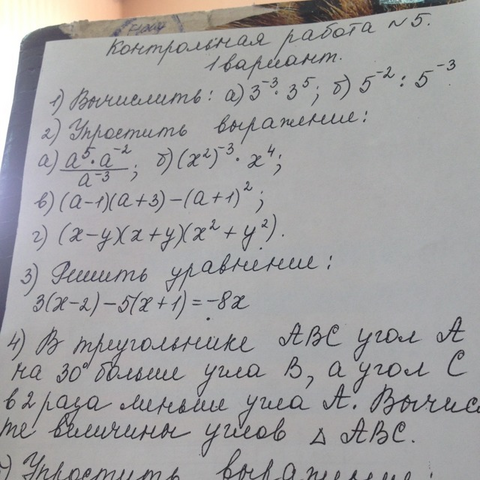 Контрольная работа №5.
1 вариант.
1) Вычислить: а) 3⁻³ · 3⁵; б) 5⁻² : 5⁻³
2) Упростить выражение:
а) a⁵·a⁻²/a⁻³; б) (x²)⁻³ · x⁴;
в) (a-1)(a+3)-(a+1)²;
г) (x-y)(x+y)(x²+y²).
3) Решить уравнение:
3(x-2)-5(x+1)=-8x
4) В треугольнике ABC угол A
на 30° больше угла B, а угол C
в 2 раза меньше угла A. Вычисли
те величины углов △ ABC.
Упростить выражение: